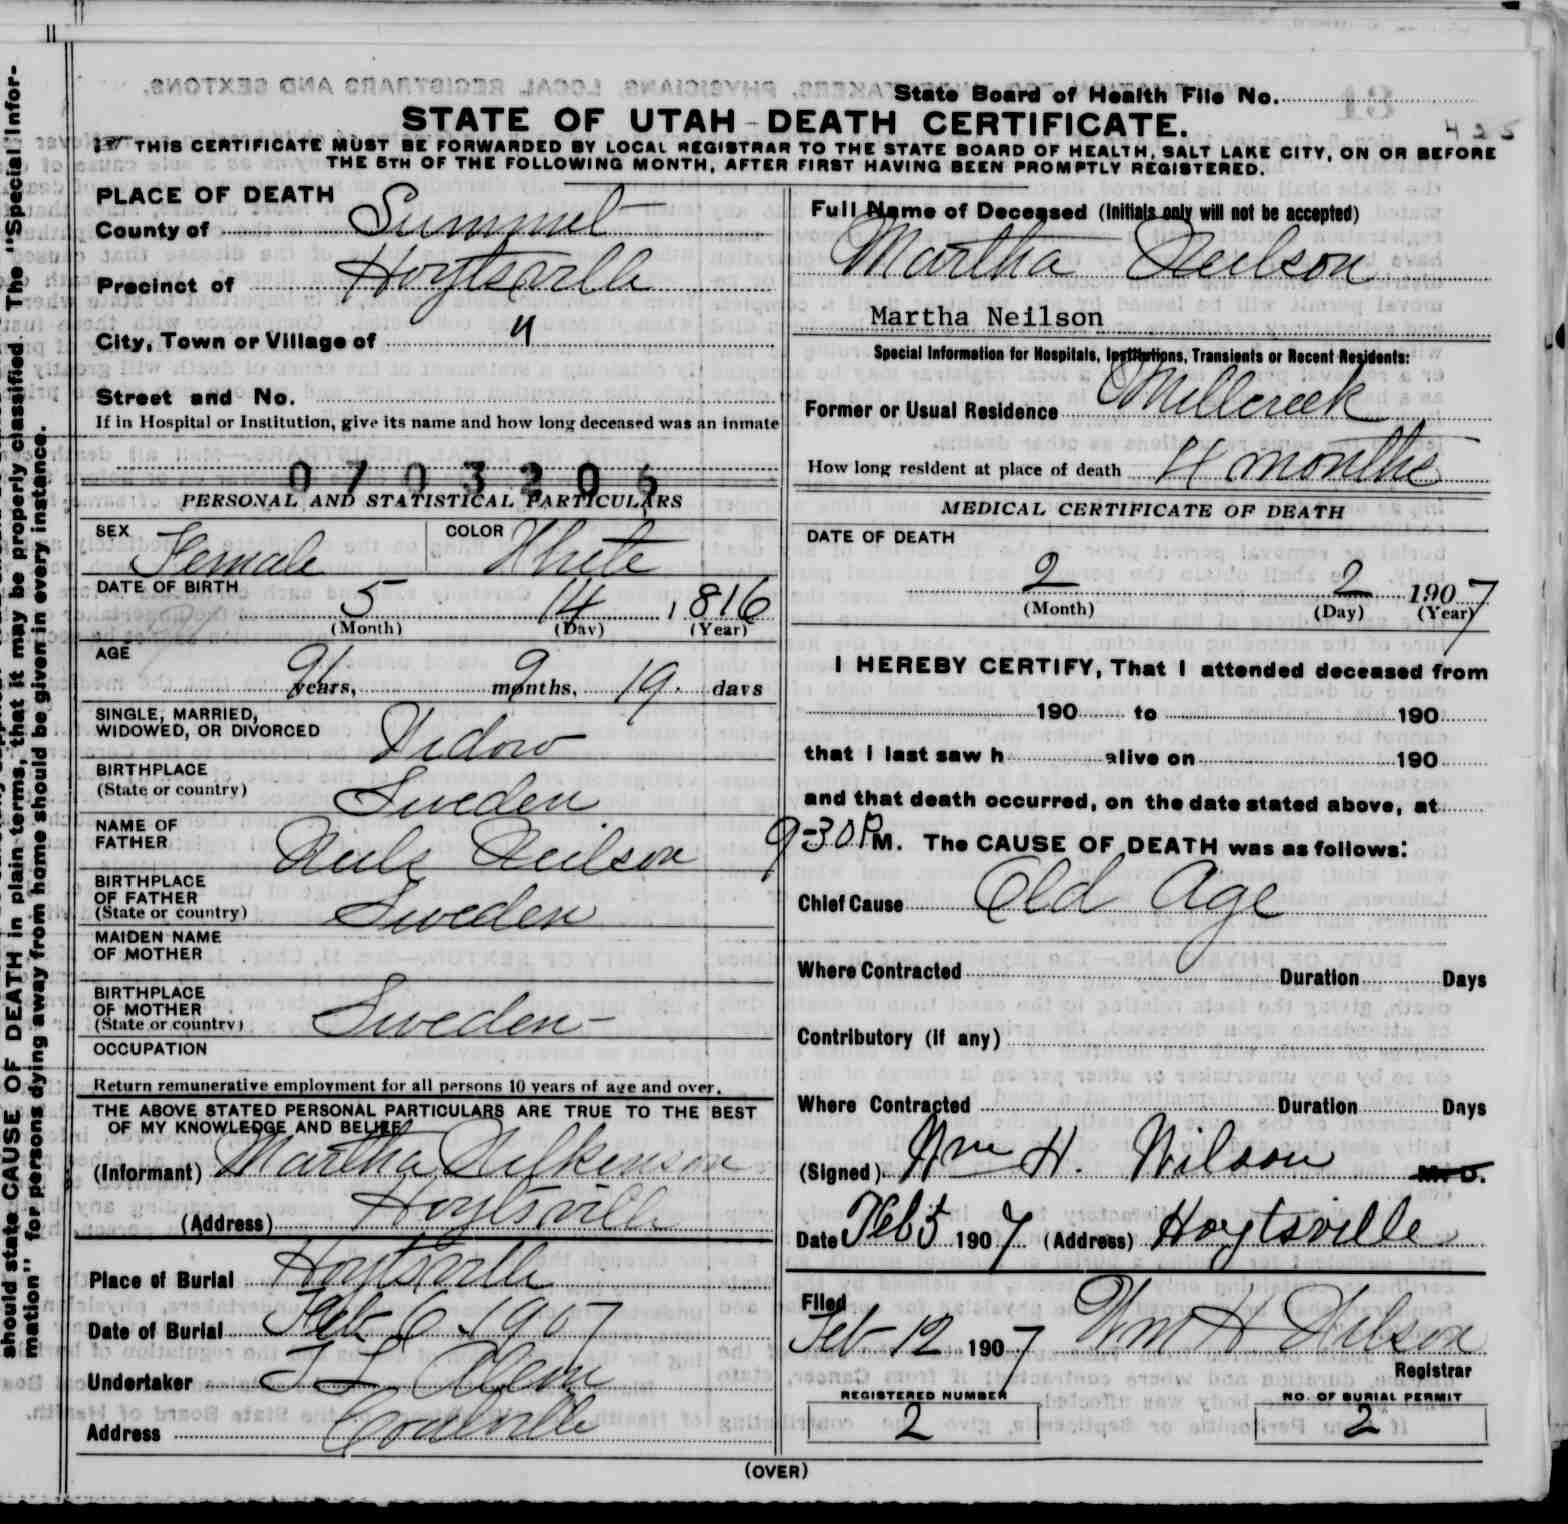 should state CAUSE OF DEATH in plain terms, that it may be properly classified. The "Special Infor-
mation" for persons dying away from home should be given in every instance.
State Board of Health File No.
STATE OF UTAH - DEATH CERTIFICATE.
425
THIS CERTIFICATE MUST BE FORWARDED BY LOCAL REGISTRAR TO THE STATE BOARD OF HEALTH, SALT LAKE CITY, ON OR BEFORE
THE 5TH OF THE FOLLOWING MONTH, AFTER FIRST HAVING BEEN PROMPTLY REGISTERED.
PLACE OF DEATH
County of Summit
Precinct of Hoytsville
City, Town or Village of "
Street and No.
If in Hospital or Institution, give its name and how long deceased was an inmate
0703205
PERSONAL AND STATISTICAL PARTICULARS
SEX Female COLOR White
DATE OF BIRTH 5 14 1816
(Month) (Day) (Year)
AGE
91 years, 9 months, 19 days
SINGLE, MARRIED,
WIDOWED, OR DIVORCED Widow
BIRTHPLACE
(State or country) Sweden
NAME OF
FATHER Neils Neilson
BIRTHPLACE
OF FATHER
(State or country) Sweden
MAIDEN NAME
OF MOTHER
BIRTHPLACE
OF MOTHER
(State or country) Sweden -
OCCUPATION
Return remunerative employment for all persons 10 years of age and over.
THE ABOVE STATED PERSONAL PARTICULARS ARE TRUE TO THE BEST
OF MY KNOWLEDGE AND BELIEF
(Informant) Martha Wilkinson
(Address) Hoytsville
Place of Burial Hoytsville
Date of Burial Feb 6 1907
Undertaker
Address Coalville
Full Name of Deceased (Initials only will not be accepted)
Martha Neilson
Martha Neilson
Special Information for Hospitals, Institutions, Transients or Recent Residents:
Former or Usual Residence Millcreek
How long resident at place of death 4 months
MEDICAL CERTIFICATE OF DEATH
DATE OF DEATH
2 2 1907
(Month) (Day) (Year)
I HEREBY CERTIFY, That I attended deceased from
190 to 190
that I last saw h alive on 190
and that death occurred, on the date stated above, at
9-30 P M. The CAUSE OF DEATH was as follows:
Chief Cause Old Age
Where Contracted Duration Days
Contributory (if any)
Where Contracted Duration Days
(Signed) Wm H. Wilson M. D.
Date Feb 5 1907 (Address) Hoytsville
Filed
Feb 12 1907 Wm H Wilson
Registrar
REGISTERED NUMBER NO. OF BURIAL PERMIT
2 2
(OVER)